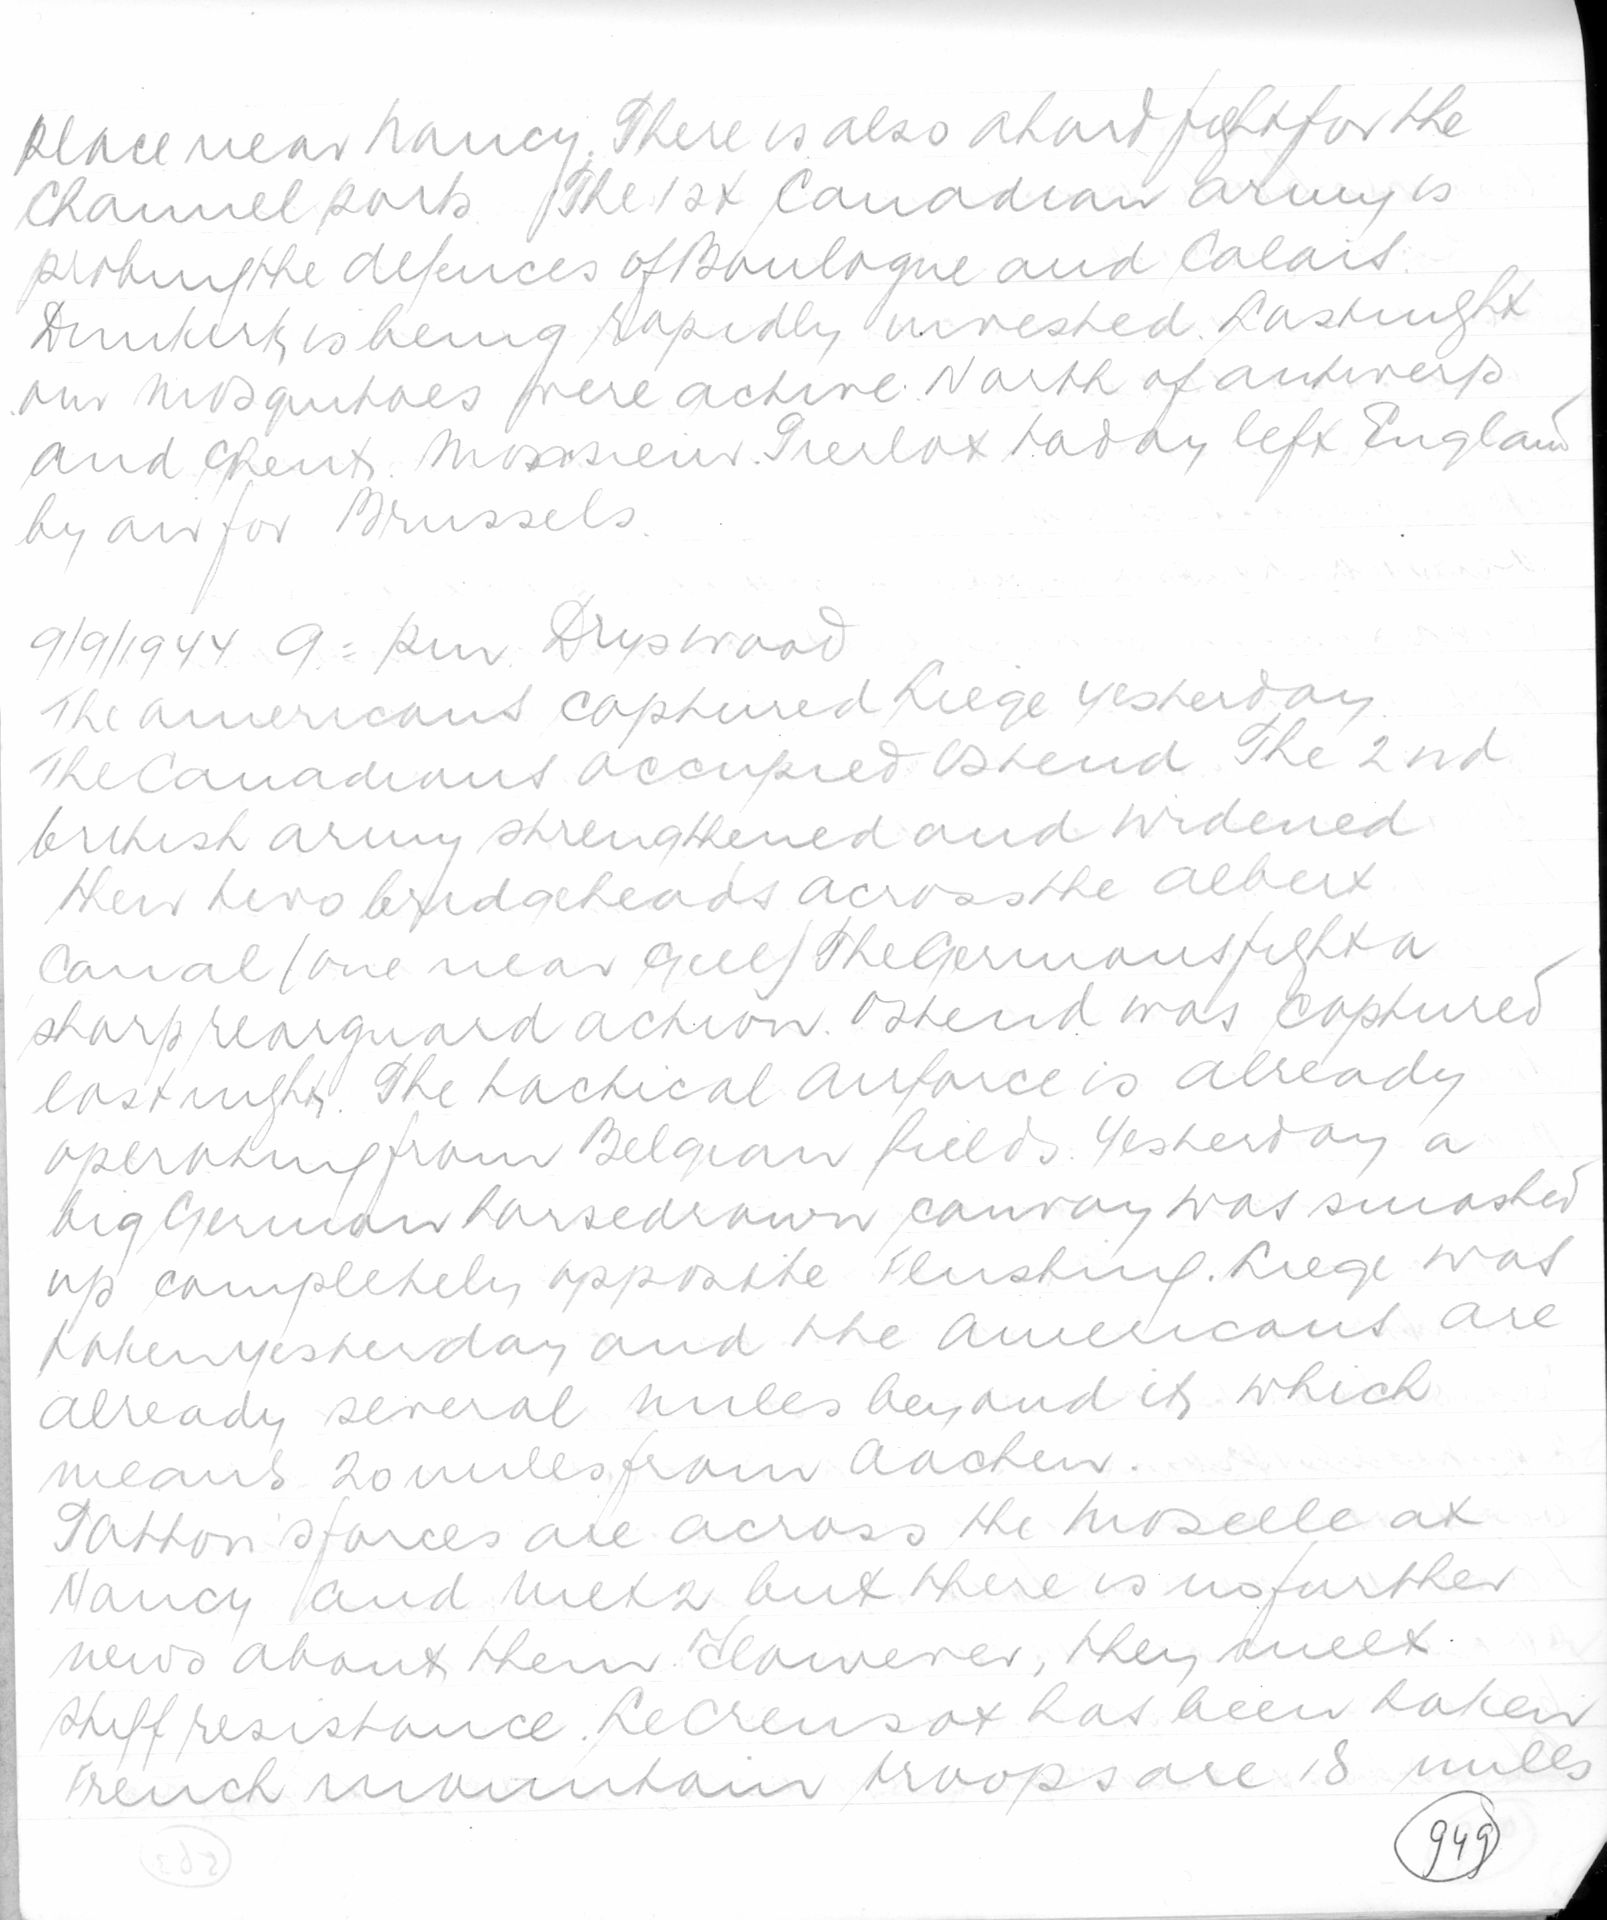 place near Nancy. There is also a hard fight for the
Channel ports The 1st Canadian army is
probing the defences of Boulogne and Calais.
Dunkerk is being rapidly invested. Last night
our Mosquitoes were active North of antwerp
and Ghent. Monsieur Pierlot today left England
by air for Brussels.
9/9/1944 9 = pm Dryswood
The americans captured Liege yesterday
The Canadians occupied Ostend The 2nd
british army strengthened and widened
their two bridgeheads across the albert
Canal (one near Geel) The Germans fight a
sharp rearguard action. Ostend was captured
last night. The tactical airforce is already
operating from Belgian fields. Yesterday a
big German horsedrawn convoy was smashed
up completely opposite Flushing. Liege was
taken yesterday and the americans are
already several miles beyond it, which
means 20 miles from aachen.
Patton's forces are across the Moselle at
Nancy and Metz but there is no further
news about them. However, they meet
stiff resistance. Le Creusot has been taken
French mountain troops are 18 miles
949
563